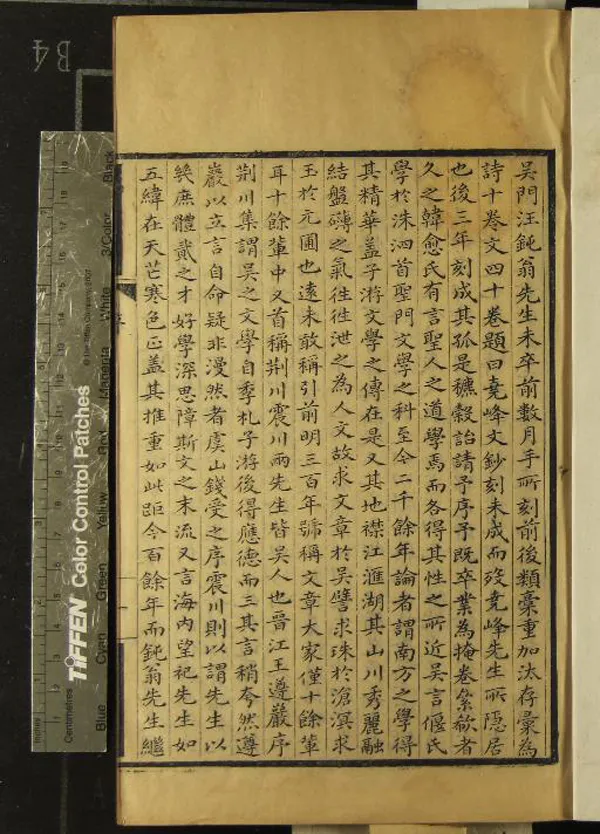 吳門汪鈍翁先生未卒前數月手所刻前後類稾重加汰存彙為
詩十卷文四十卷題曰堯峰文鈔刻未成而歿堯峰先生所隱居
也後三年刻成其孤是穮穀詒請予序予既卒業為掩卷絫欷者
久之韓愈氏有言聖人之道學焉而各得其性之所近吳言偃氏
學於洙泗首聖門文學之科至今二千餘年論者謂南方之學得
其精華蓋子游文學之傳在是又其地襟江滙湖其山川秀麗融
結盤礴之氣徃徃泄之為人文故求文章於吳譬求珠於滄溟求
玉於元圃也遠未敢稱引前明三百年號稱文章大家僅十餘軰
耳十餘軰中又首稱荆川震川兩先生皆吳人也晉江王遵巖序
荆川集謂吳之文學自季札子游後得應德而三其言稍夸然遵
巖以立言自命疑非漫然者虞山錢受之序震川則以謂先生以
幾庶體貳之才好學深思障斯文之末流又言海內望祀先生如
五緯在天芒寒色正蓋其推重如此距今百餘年而鈍翁先生繼
B4
TIFFEN Color Control Patches
© The Tiffen Company, 2007
Inches
Centimetres
Blue
Cyan
Green
Yellow
Red
Magenta
White
3/Color
Black